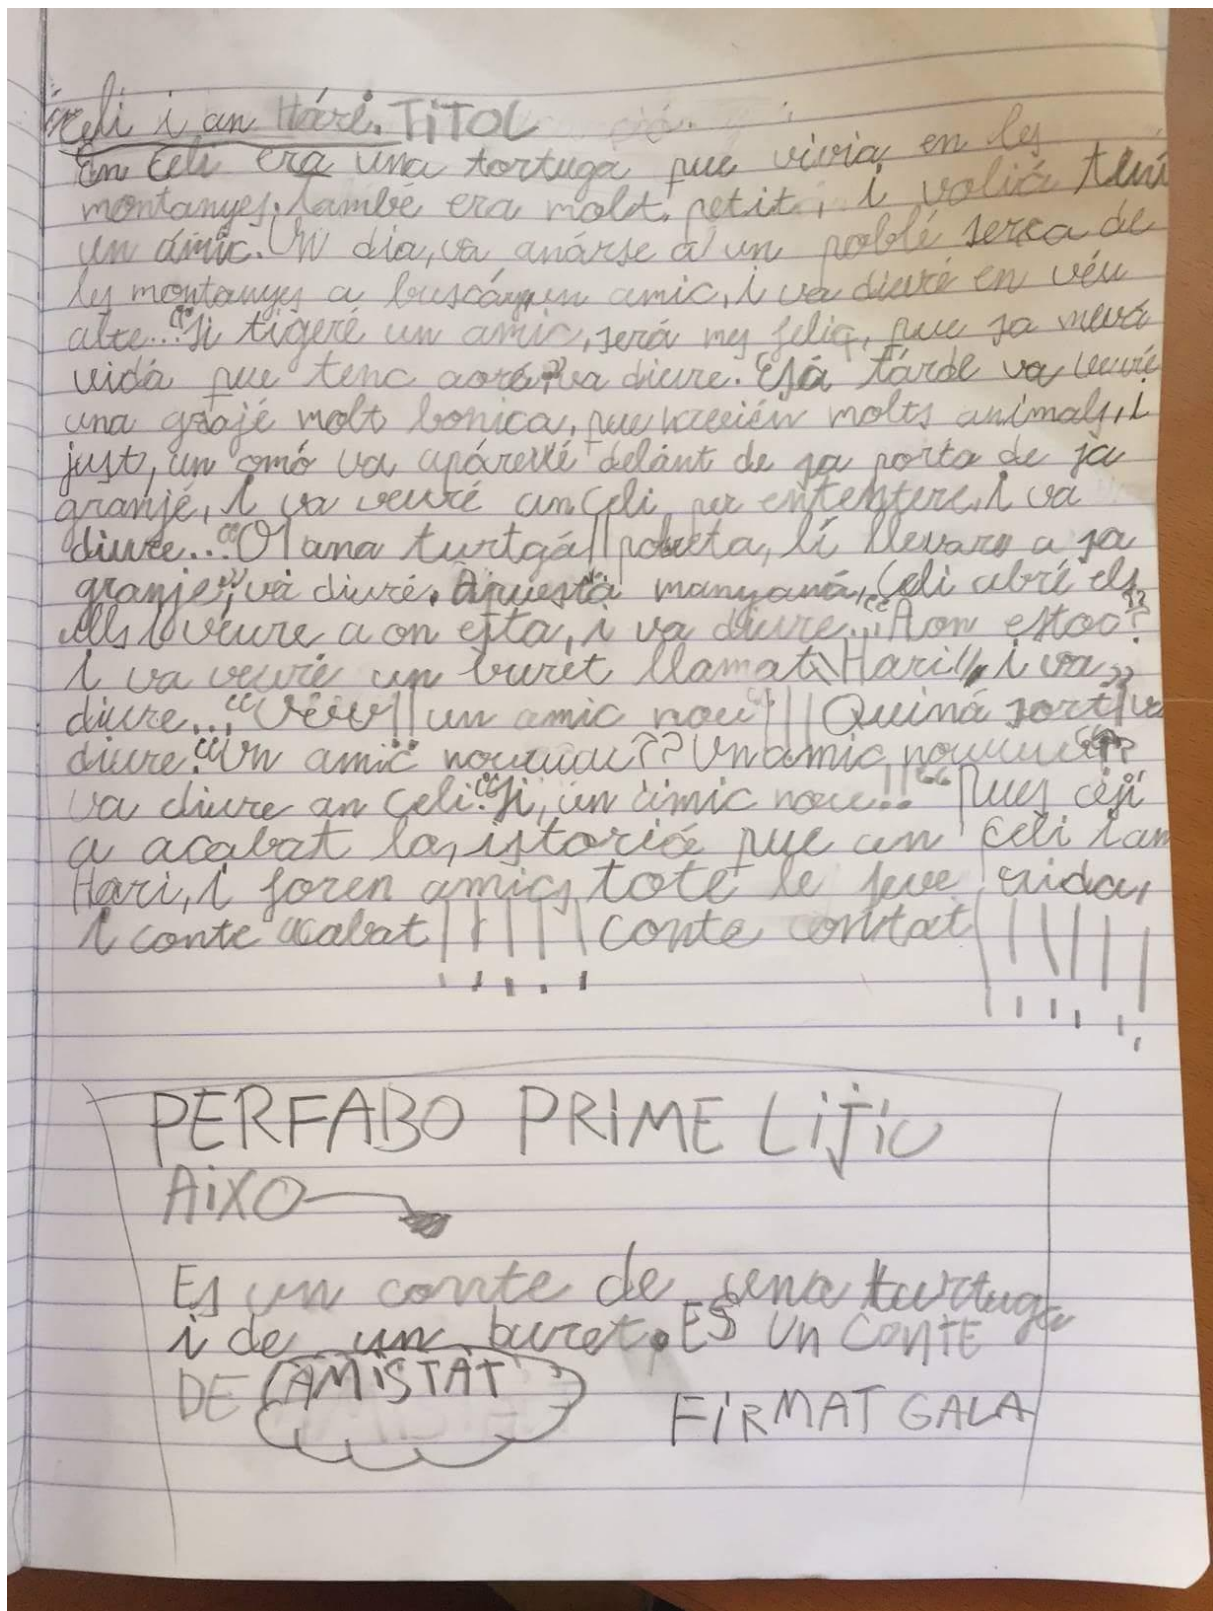 en Celi i an Hári. TiTOL
En Celi era una tortuga que vivia en les
montanyes. també era molt petit, i voliá tení
un ámic. Un dia, va anárse a un poblé serca de
les montanyes a buscár un amic, i va diuré en véu
alte... "Si tigeré un amic, será mes feliç, que sa mevá
vidá que tenc aora" va diure. Esá tárde va veuré
una grajé molt bonica, que hi molts animals, i
just, un omó va aparexé delánt de sa porta de sa
granjé, i va veuré an Celi per entenfere, i va
diure... "O! una turtgá!! pobreta, lí llevaré a sa
granje", va diuré. Aquesta manyaná, Celi abré els
ulls i veure a on esta, i va diure... "Aon estoc"?
i va veuré un buret llamat Hari!! i va
diure... "Véiv!! un amic nou!!! Quiná sort! va
diure. "Un amic nouuuu?? Un amic nouuuu??"
va diure an Celi. "Si, un amic nou!!" Pues cesi
a acabat la istoriá que an Celi i an
Hari, i foren amics tote le seve vida,
i conte acabat!!!!! conte contat!!!!!!
PERFABO PRIME LiJiU
AiXO
Es un conte de una turtuga
i de un buret. ES UN CONTE
DE AMiSTAT
FiRMAT GALA